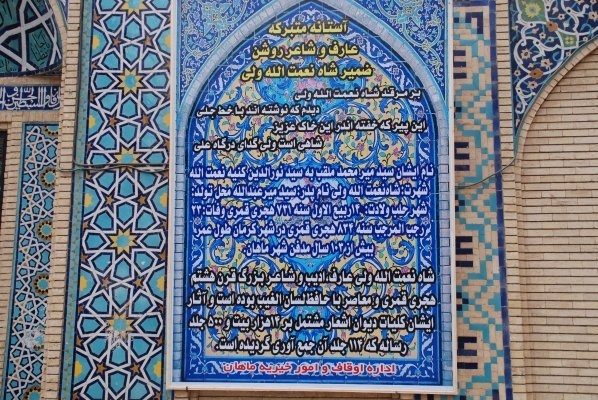 آستانه متبرکه
عارف و شاعر روشن
ضمیر شاه نعمت الله ولی
بر مرقد شاه نعمت الله ولی
دیدم که نوشته اند با خط جلی
این پیر که خفته اندر این خاک عزیز
شاهی است ولی گدای درگاه علی
نام ایشان سید میر محمد ملقب به سید نورالدین کنیه نعمت الله
شهرت: شاه نعمت الله ولی نام پدر: سید میر عبدالله محل تولد:
شهر حلب ولادت: ربیع الاول سنه هجری قمری وفات: ۲۳
رجب المرجب سنه ۸۳۲ هجری قمری در شهر کرمان طول عمر
بیش از ۱۰۲ سال مدفن شهر ماهان
شاه نعمت الله ولی عارف، ادیب و شاعر بزرگ قرن هشتم
هجری قمری و معاصر با حافظ لسان الغیب بوده است و آثار
ایشان کلیات دیوان اشعار مشتمل بر ۱۲ هزار بیت و ۵۰۰ جلد
رساله که ۱۱۴ جلد آن جمع آوری گردیده است.
اداره اوقاف و امور خیریه ماهان